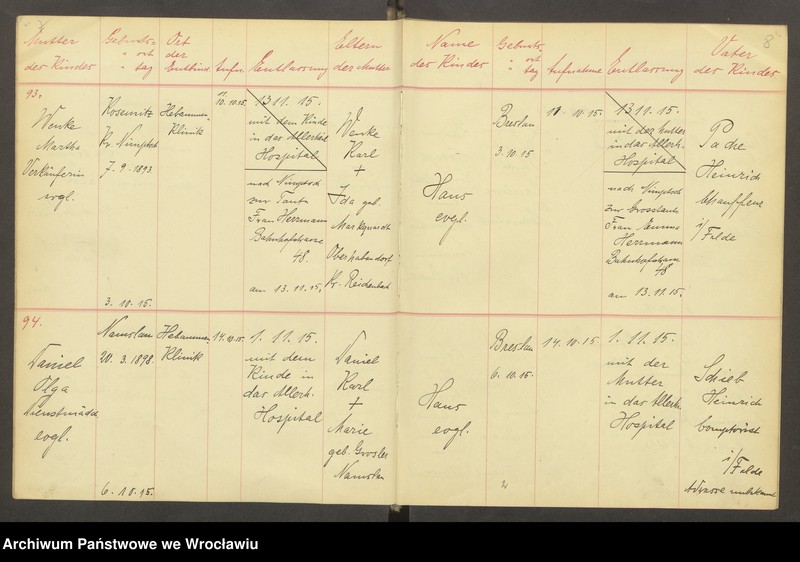 Mutter
der Kinder
Geburts-
" ort
" tag
Ort
der
Entbind.
Aufn.
Entlassung
Eltern
der Mutter
93.
Wenke
Martha
Verkäuferin
evgl.
Rosemitz
Kr. Nimptsch
7. 9. 1893
3. 10. 15.
Hebammen-
Klinik
11.
10. 10. 15.
13 11. 15.
mit dem Kinde
in das Allerheil
Hospital
nach Nimptsch
zur Tante
Frau Herrmann
Bahnhofstrasse
48.
am 13. 11. 15.
Wenke
Karl
+
Ida geb.
Markquardt
Kr. Reichenbach
94.
Daniel
Olga
Dienstmädch
evgl.
Namslau
20. 3. 1898.
6. 10. 15.
Hebammen-
Klinik
14. 10. 15.
1. 11. 15.
mit dem
Kinde in
das Allerh.
Hospital
Daniel
Karl
+
Marie
geb. Grosler
Namslau
8
Name
der Kinder
Geburts-
" ort
" tag
Aufnahme
Entlassung
Vater
der Kinder
Hans
evgl.
Breslau
3. 10. 15
11. 10. 15.
13 11. 15.
mit der Mutter
in das Allerh.
Hospital
nach Nimptsch
zur Grosstante
Frau Emma
Herrmann
Bahnhofstrasse
48
am 13. 11. 15.
Heinrich
i/Felde
Hans
evgl.
Breslau
6. 10. 15.
14. 10. 15
1. 11. 15.
mit der
Mutter
in das Allerh.
Hospital
Schieb
Heinrich
Comptorist
i/Felde
Adresse unbekannt
Archiwum Państwowe we Wrocławiu